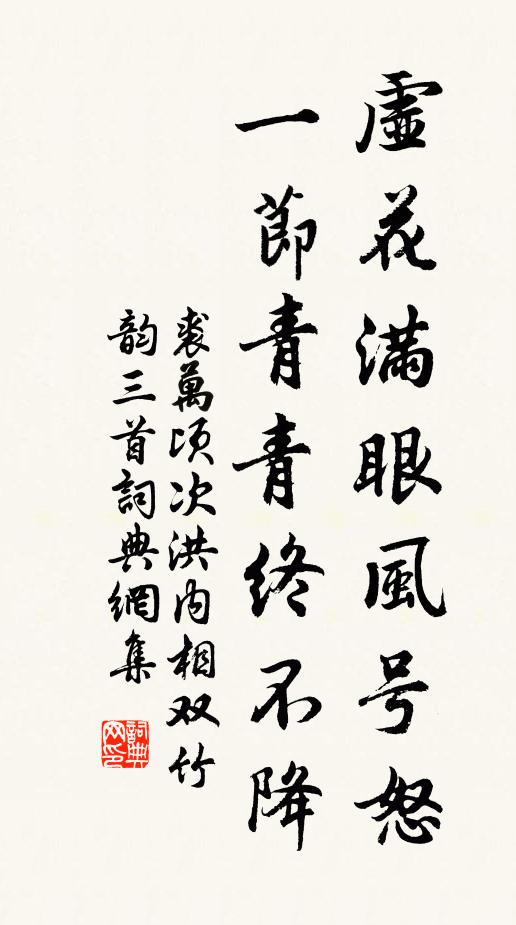 虛花滿眼風号怒
一節青青終不降
裘萬頃次洪内相双竹
韵三首詞典網集
詞典网印